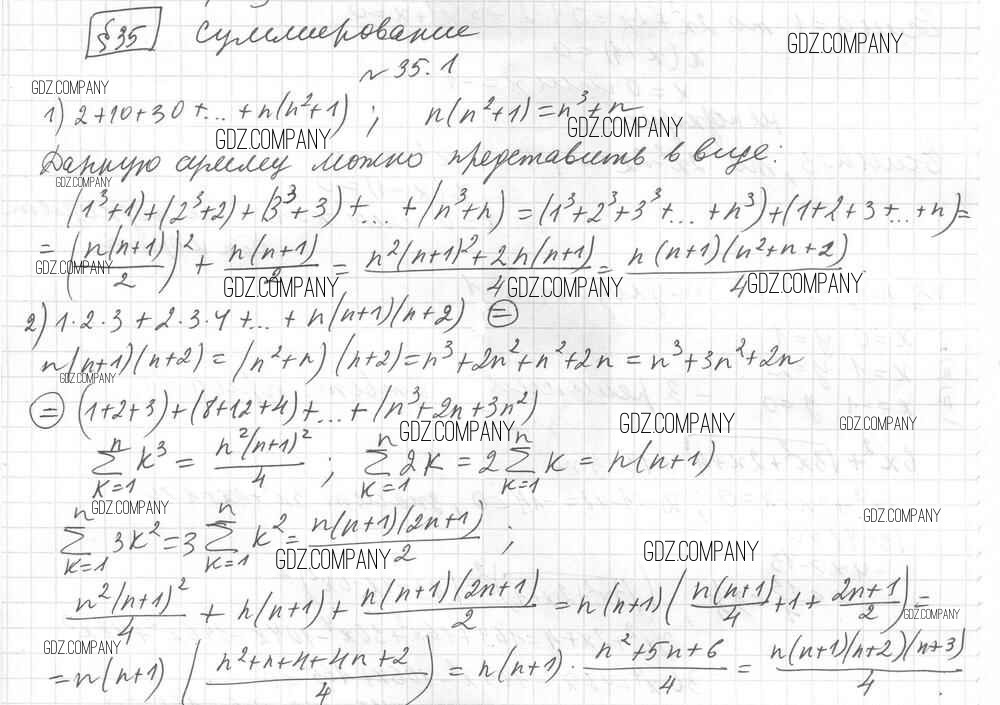 §35 Суммирование
GDZ.COMPANY
№ 35.1
GDZ.COMPANY
1) 2+10+30+...+n(n²+1) ; n(n²+1)=n³+n
GDZ.COMPANY GDZ.COMPANY
Данную сумму можно представить в виде:
GDZ.COMPANY
(1³+1)+(2³+2)+(3³+3)+...+(n³+n)=(1³+2³+3³+...+n³)+(1+2+3+...+n)=
= (n(n+1)/2)² + n(n+1)/2 = (n²(n+1)²+2n(n+1))/4 = n(n+1)(n²+n+2)/4
GDZ.COMPANY GDZ.COMPANY GDZ.COMPANY GDZ.COMPANY
2) 1·2·3+2·3·4+...+n(n+1)(n+2) =
n(n+1)(n+2)=(n²+n)(n+2)=n³+2n²+n²+2n=n³+3n²+2n
GDZ.COMPANY
= (1+2+3)+(8+12+4)+...+(n³+2n+3n²)
GDZ.COMPANY GDZ.COMPANY GDZ.COMPANY
∑ₖ₌₁ⁿ k³ = n²(n+1)²/4 ; ∑ₖ₌₁ⁿ 2k = 2∑ₖ₌₁ⁿ k = n(n+1)
GDZ.COMPANY GDZ.COMPANY
∑ₖ₌₁ⁿ 3k² = 3∑ₖ₌₁ⁿ k² = n(n+1)(2n+1)/2 ;
GDZ.COMPANY GDZ.COMPANY
n²(n+1)²/4 + n(n+1) + n(n+1)(2n+1)/2 = n(n+1)(n(n+1)/4+1+(2n+1)/2)=
GDZ.COMPANY
GDZ.COMPANY
=n(n+1)((n²+n+4+4n+2)/4) = n(n+1)·(n²+5n+6)/4 = n(n+1)(n+2)(n+3)/4